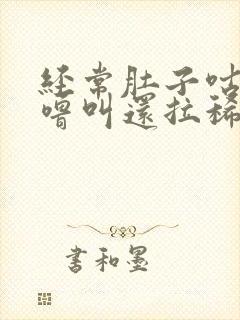 經常肚子咕
嚕叫還拉稀
書和墨